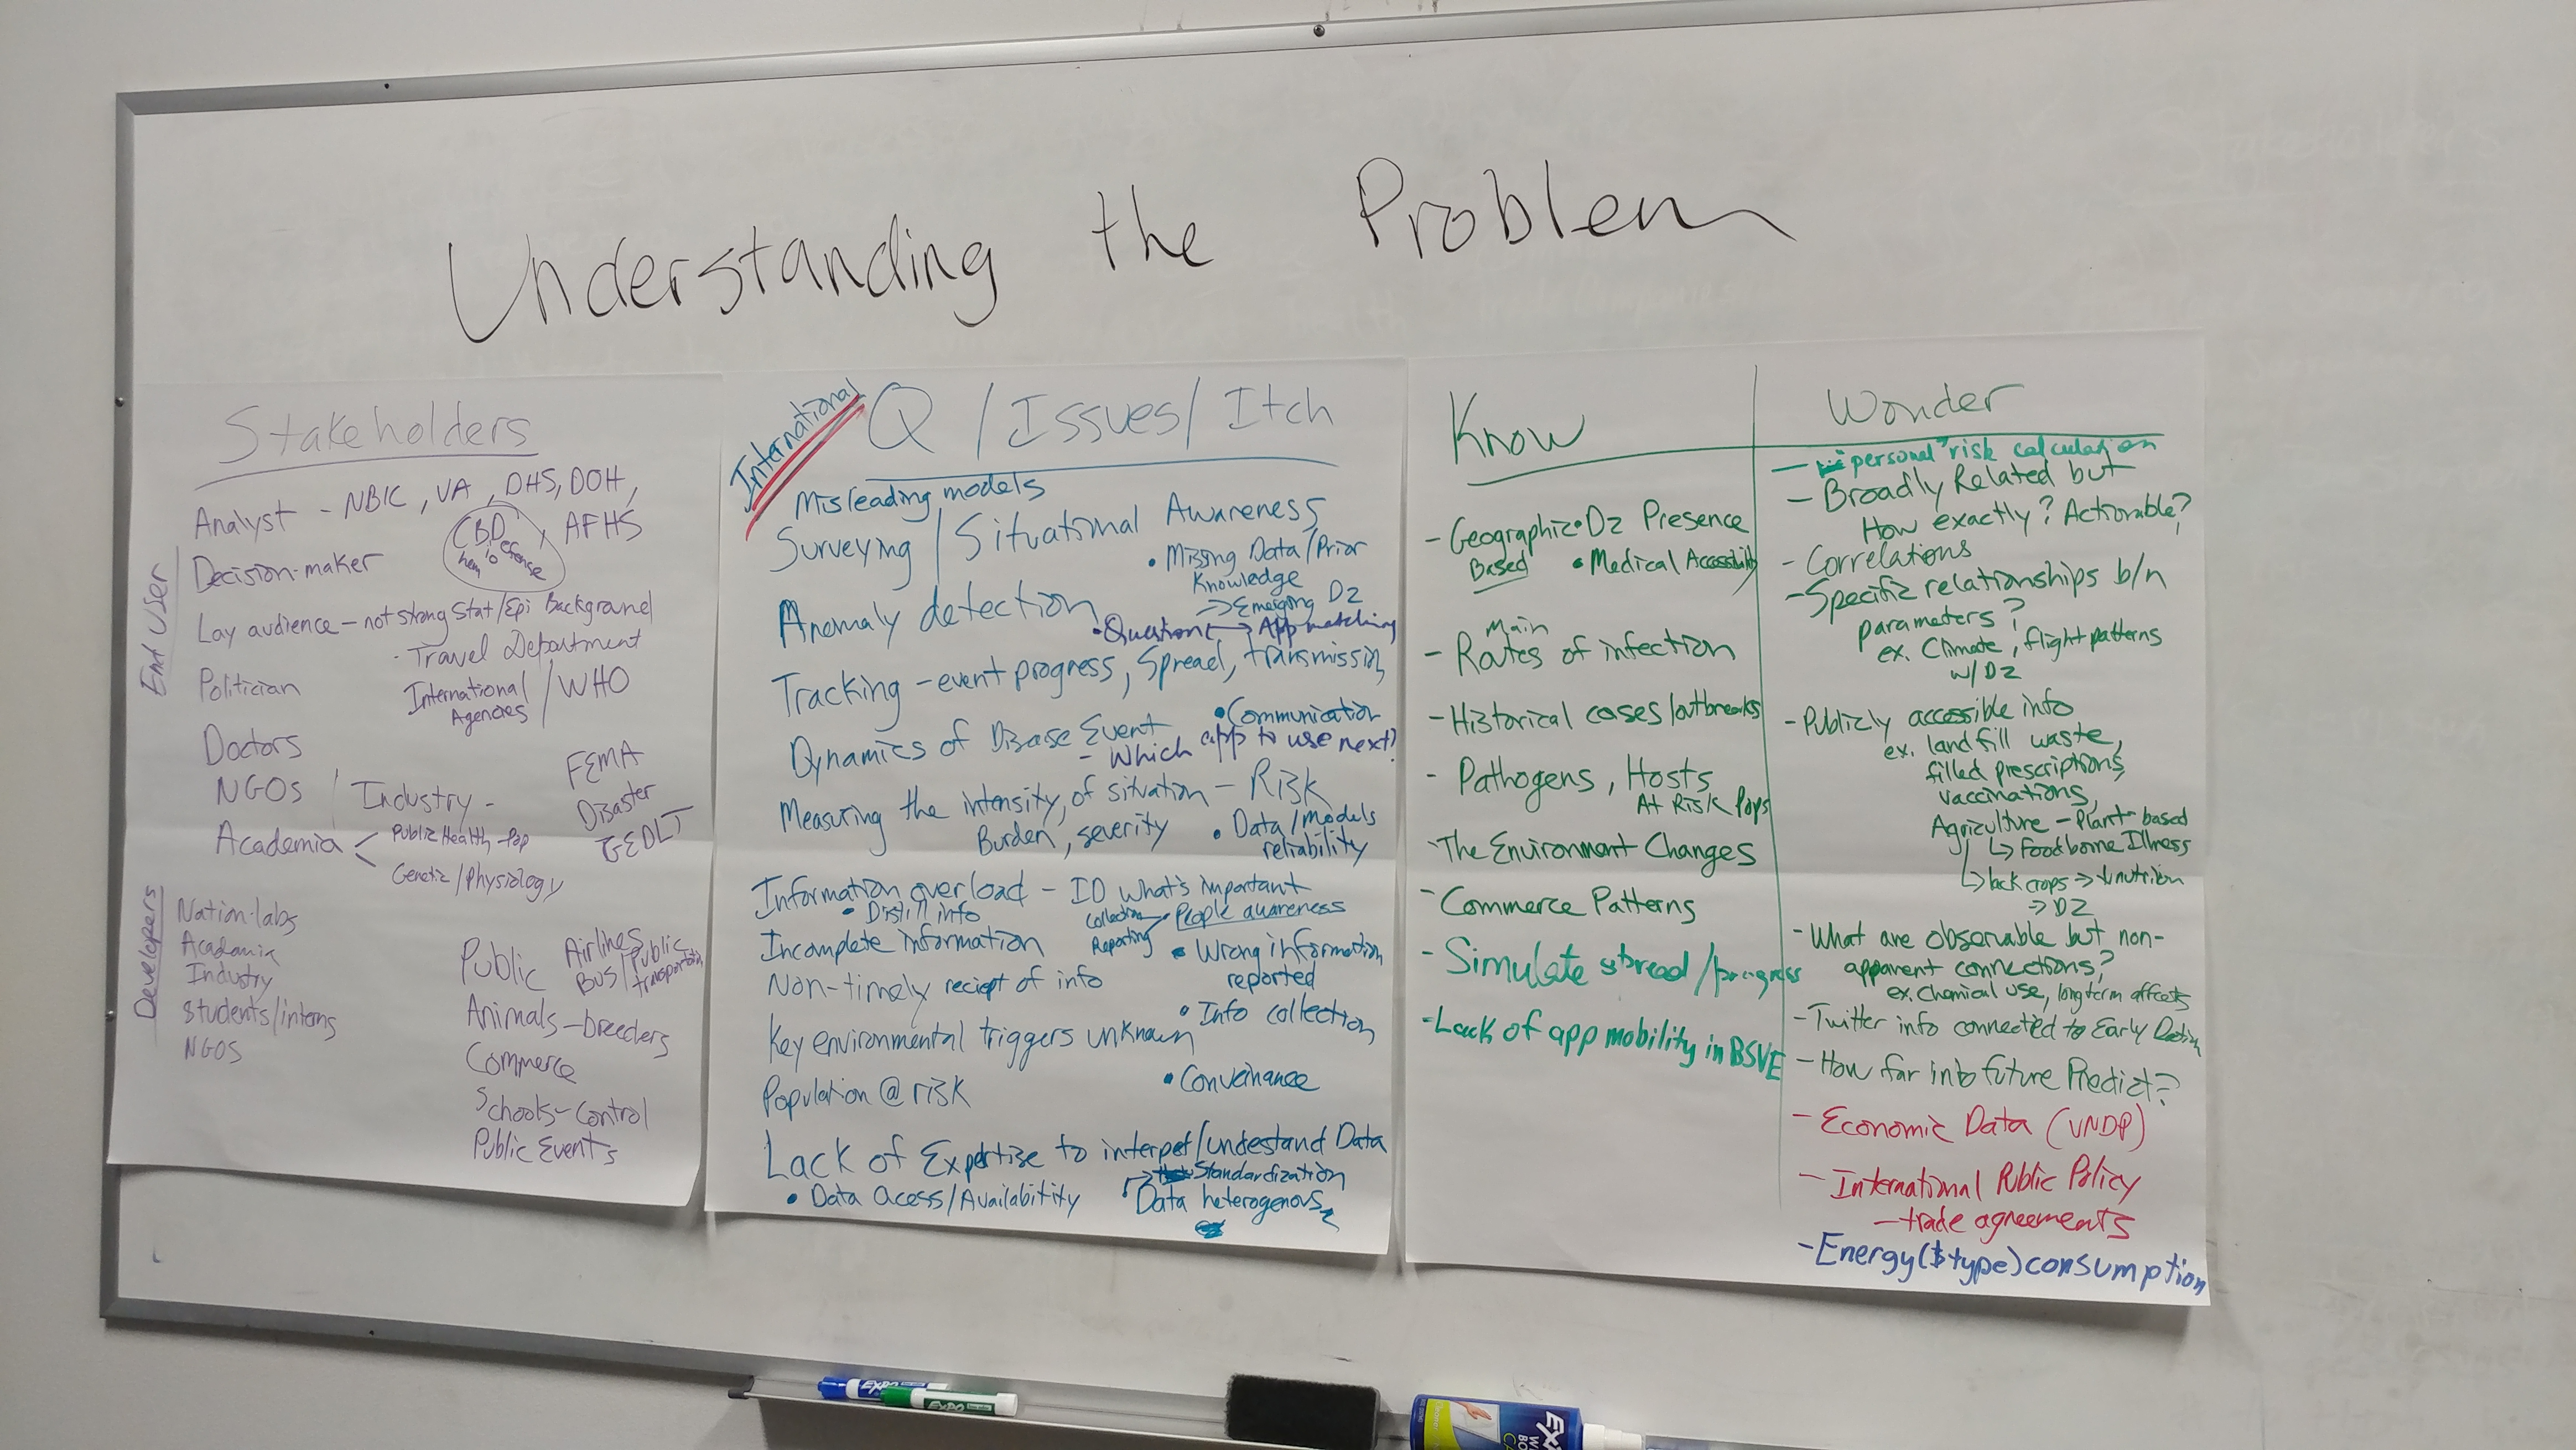 Understanding the Problem
Stakeholders
Analyst - NBIC, VA, DHS, DOH,
CBD, AFHS
chem bio defense
End User
Decision-maker
Lay audience - not strong Stat/Epi Background
- Travel Department
Politician
International Agencies / WHO
Doctors
NGOs
Industry -
FEMA
Disaster
Academia
Public Health - pop
Genetic/Physiology
Developers
Nation-labs
Academia
Industry
Students/interns
NGOS
Public
Airlines
Bus/Public transportation
Animals - breeders
Commerce
Schools - Control
Public Events
International
Q / Issues / Itch
Misleading models
Surveying / Situational Awareness
• Missing Data/Prior
Knowledge
→ Emerging Dz
Anomaly detection
• Question → App matching
Tracking - event progress, Spread, transmission
• Communication
Dynamics of Disease Event
- Which app to use next?
Measuring the intensity, of situation - Risk
Burden, severity
• Data/Models
reliability
Information overload - ID what's important
• Distill info
Collection
Reporting
• People awareness
Incomplete information
• Wrong information
reported
Non-timely reciept of info
• Info collection
Key environmental triggers unknown
• Conveinance
Population @ risk
Lack of Expertise to interpet/undestand Data
→ Standardization
• Data Acess/Availability
Data heterogenous
Know
- Geographic Based
• Dz Presence
• Medical Accessibility
- Main Routes of infection
- Historical cases/outbreaks
- Pathogens, Hosts
At Risk Pops
- The Environment Changes
- Commerce Patterns
- Simulate spread/progress
- Lack of app mobility in BSVE
Wonder
- "personal" risk calculation
- Broadly Related but
How exactly? Actionable?
- Correlations
- Specific relationships b/n
parameters?
ex. Climate, flight patterns
w/ DZ
- Publicly accessible info
ex. landfill waste,
filled prescriptions,
vaccinations,
Agriculture - Plant-based
↳ Foodborne Illness
↳ lack crops → ↓ nutrition
→ DZ
- What are observable but non-
apparent connections?
ex. Chemical use, long term affects
- Twitter info connected to Early
- How far into future Predict?
- Economic Data (UNDP)
- International Public Policy
- trade agreements
- Energy ($ type) consumption
EXPO
EXPO